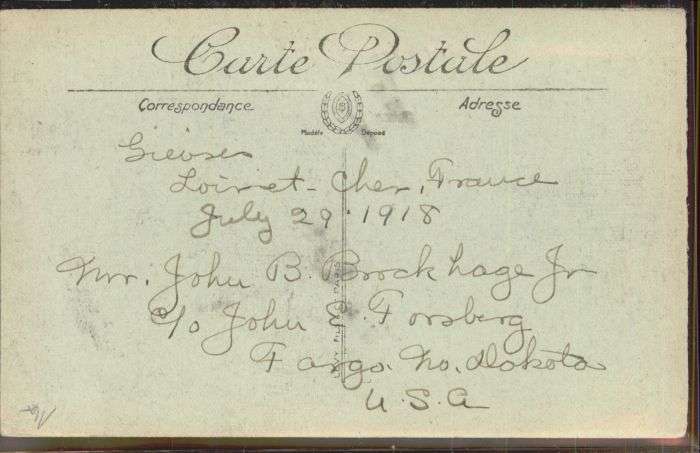 Carte Postale
Correspondance
Adresse
Modèle Déposé
Gievres
Loir-et-Cher, France
July 29 1918
Mr. John B. Brockhage Jr
c/o John E. Forsberg
Fargo. No. Dakota
U.S.A